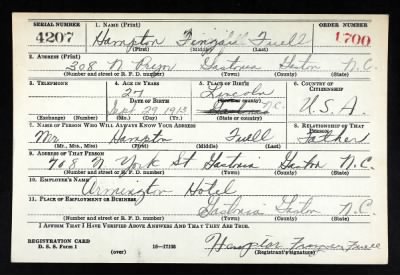 SERIAL NUMBER 1. NAME (Print) ORDER NUMBER
4207 Hampton Fuell 1700
(First) (Middle) (Last)
2. ADDRESS (Print)
308 N. Gastonia Gaston N.C.
(Number and street or R. F. D. number) (Town) (County) (State)
3. TELEPHONE 4. AGE IN YEARS 5. PLACE OF BIRTH 6. COUNTRY OF CITIZENSHIP
27 Lincoln
DATE OF BIRTH (Town or county)
Sept 29 1913 N.C. U.S.A.
(Exchange) (Number) (Mo.) (Day) (Yr.) (State or country)
7. NAME OF PERSON WHO WILL ALWAYS KNOW YOUR ADDRESS 8. RELATIONSHIP OF THAT PERSON
Mr Hampton Fuell Father
(Mr., Mrs., Miss) (First) (Middle) (Last)
9. ADDRESS OF THAT PERSON
708 N York St Gastonia Gaston N.C.
(Number and street or R. F. D. number) (Town) (County) (State)
10. EMPLOYER'S NAME
Armington Hotel
11. PLACE OF EMPLOYMENT OR BUSINESS
Gastonia Gaston N.C.
(Number and street or R. F. D. number) (Town) (County) (State)
I AFFIRM THAT I HAVE VERIFIED ABOVE ANSWERS AND THAT THEY ARE TRUE.
REGISTRATION CARD
D. S. S. Form 1 (over) 16—17105 Hampton Fuell
(Registrant's signature)